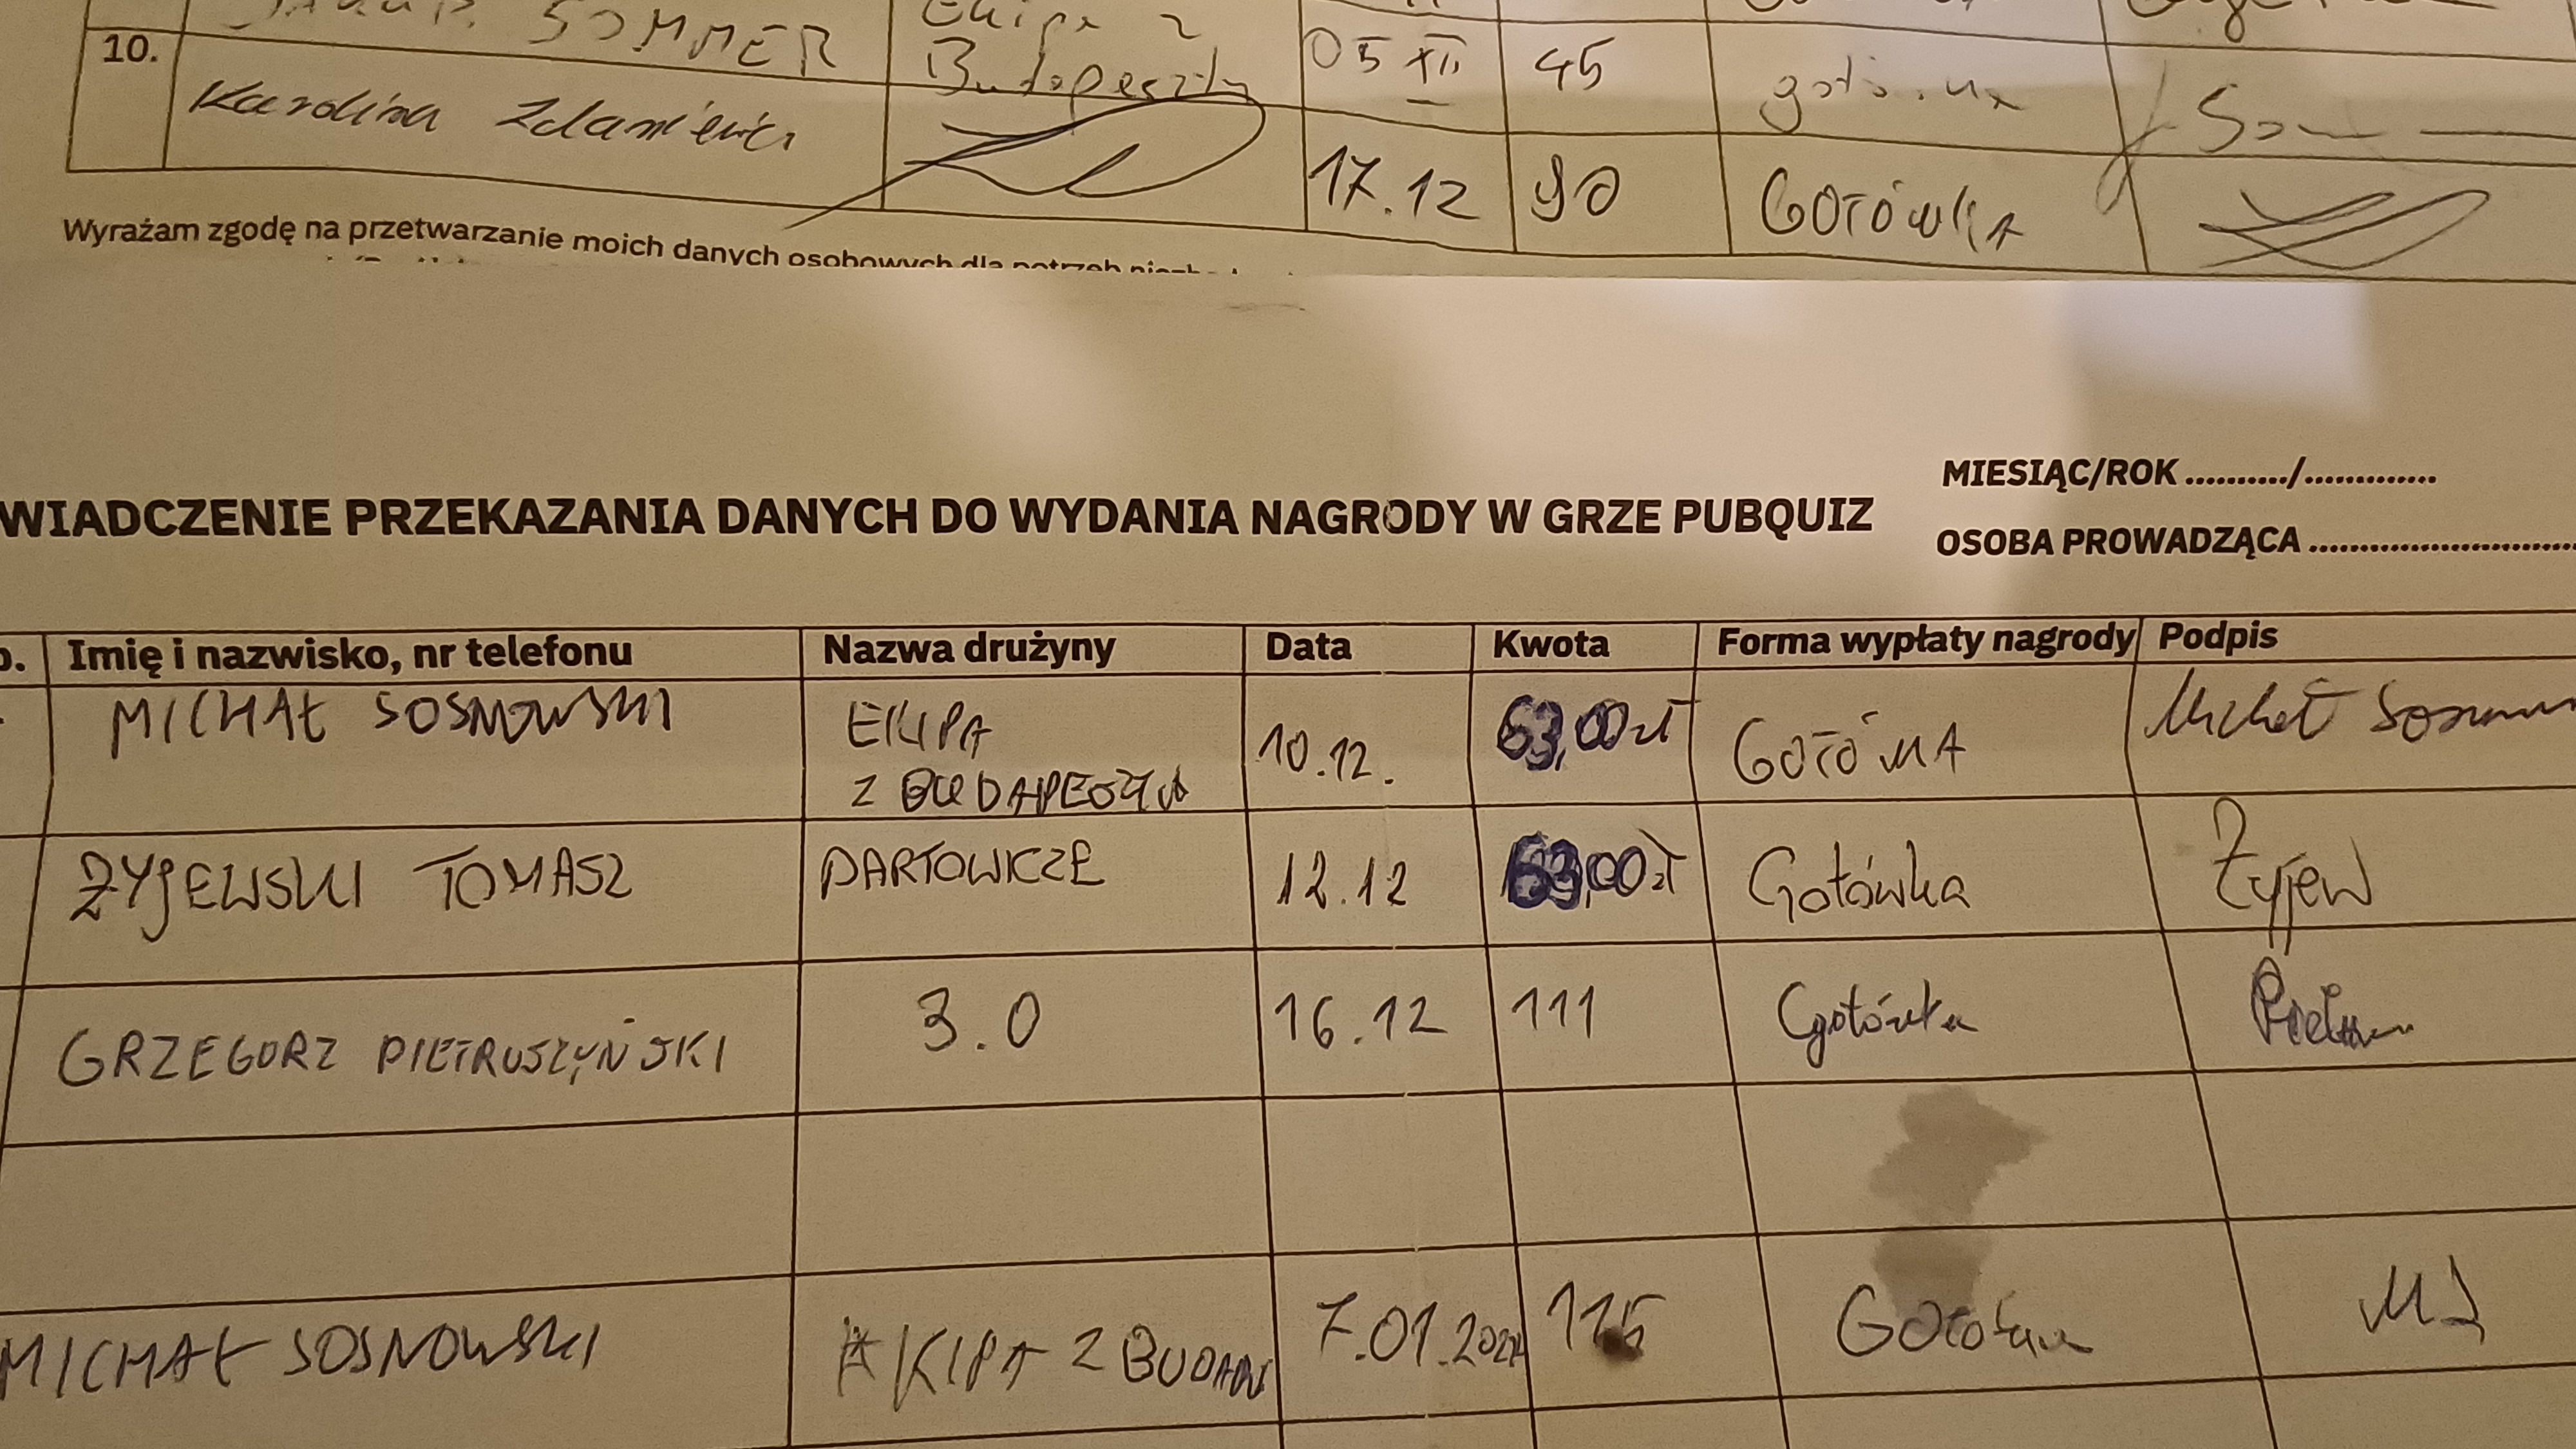 SOMMER
Ekipa z
Budapesztu
05 XII
45
gotówka
10.
Karolina
17.12
90
GOTÓWKA
Wyrażam zgodę na przetwarzanie moich danych osobowych dla potrzeb
MIESIĄC/ROK ........../.............
WIADCZENIE PRZEKAZANIA DANYCH DO WYDANIA NAGRODY W GRZE PUBQUIZ
OSOBA PROWADZĄCA ............................
Imię i nazwisko, nr telefonu Nazwa drużyny Data Kwota Forma wypłaty nagrody Podpis
MICHAŁ SOSNOWSKI EKIPA 10.12. 63,00 zł GOTÓWKA Michał
Z BUDAPESZTU
ŻYJEWSKI TOMASZ DARTOWICZE 12.12 63,00 zł Gotówka Żyjew
GRZEGORZ PIETRUSZYŃSKI 3.0 16.12 111 Gotówka
MICHAŁ SOSNOWSKI EKIPA Z 7.01. 115 Gotówka MS